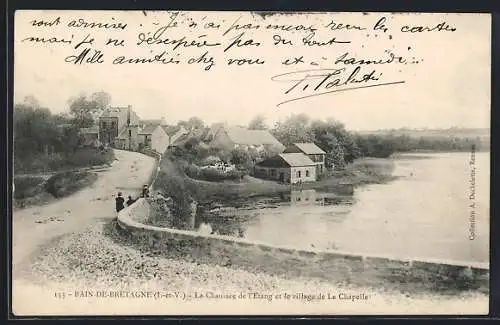 sont admises - J'ai pas recu les cartes
mais je ne désespère pas du tout
Mille amitiés chez vous et à Samedi.
153 - BAIN-DE-BRETAGNE (I.-et-V.) - La Chaussée de l'Etang et le village de La Chapelle
Collection A. Duchêne, Rennes